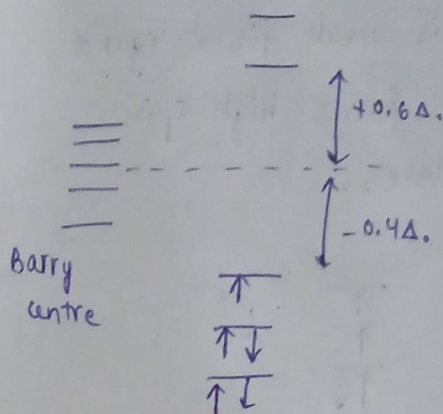 +0.6Δ.
-0.4Δ.
Barry
centre
↑
↑↓
↑↓